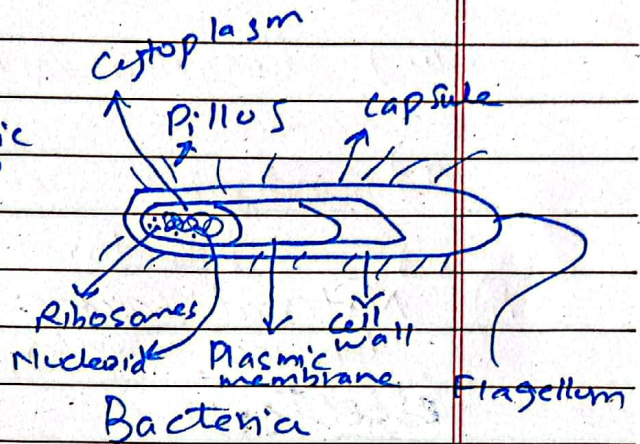 Cytoplasm
Pillos
capsule
ic
Ribosomes
Nucleoid
Plasmic
membrane
cell
wall
Flagellum
Bacteria